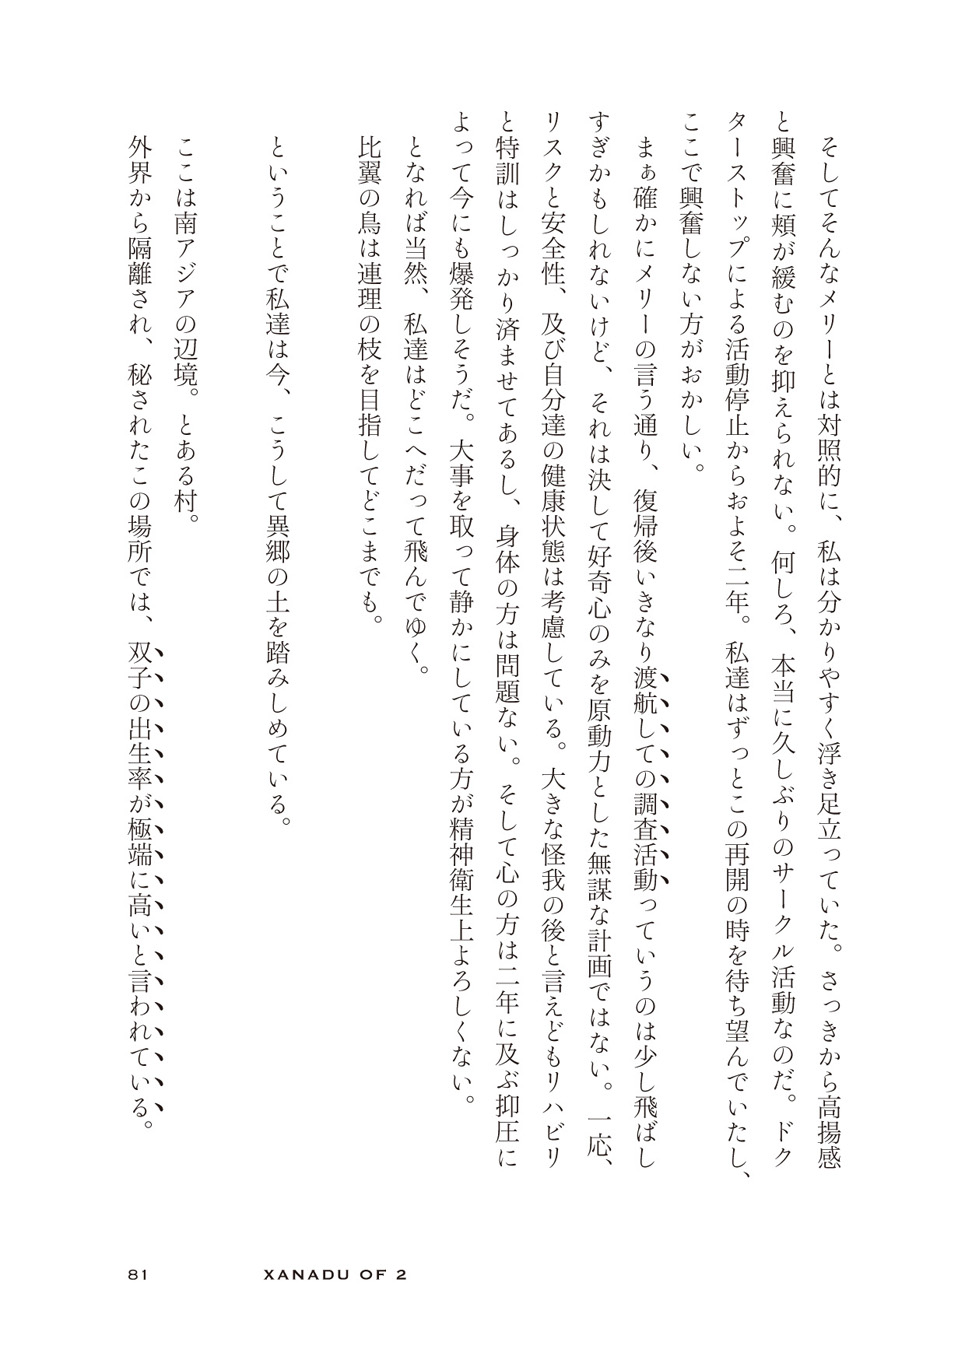 そしてそんなメリーとは対照的に、私は分かりやすく浮き足立っていた。さっきから高揚感
と興奮に頬が緩むのを抑えられない。何しろ、本当に久しぶりのサークル活動なのだ。ドク
ターストップによる活動停止からおよそ二年。私達はずっとこの再開の時を待ち望んでいたし、
ここで興奮しない方がおかしい。
まぁ確かにメリーの言う通り、復帰後いきなり渡航しての調査活動っていうのは少し飛ばし
すぎかもしれないけど、それは決して好奇心のみを原動力とした無謀な計画ではない。一応、
リスクと安全性、及び自分達の健康状態は考慮している。大きな怪我の後と言えどもリハビリ
と特訓はしっかり済ませてあるし、身体の方は問題ない。そして心の方は二年に及ぶ抑圧に
よって今にも爆発しそうだ。大事を取って静かにしている方が精神衛生上よろしくない。
となれば当然、私達はどこへだって飛んでゆく。
比翼の鳥は連理の枝を目指してどこまでも。
ということで私達は今、こうして異郷の土を踏みしめている。
ここは南アジアの辺境。とある村。
外界から隔離され、秘されたこの場所では、双子の出生率が極端に高いと言われている。
81
XANADU OF 2